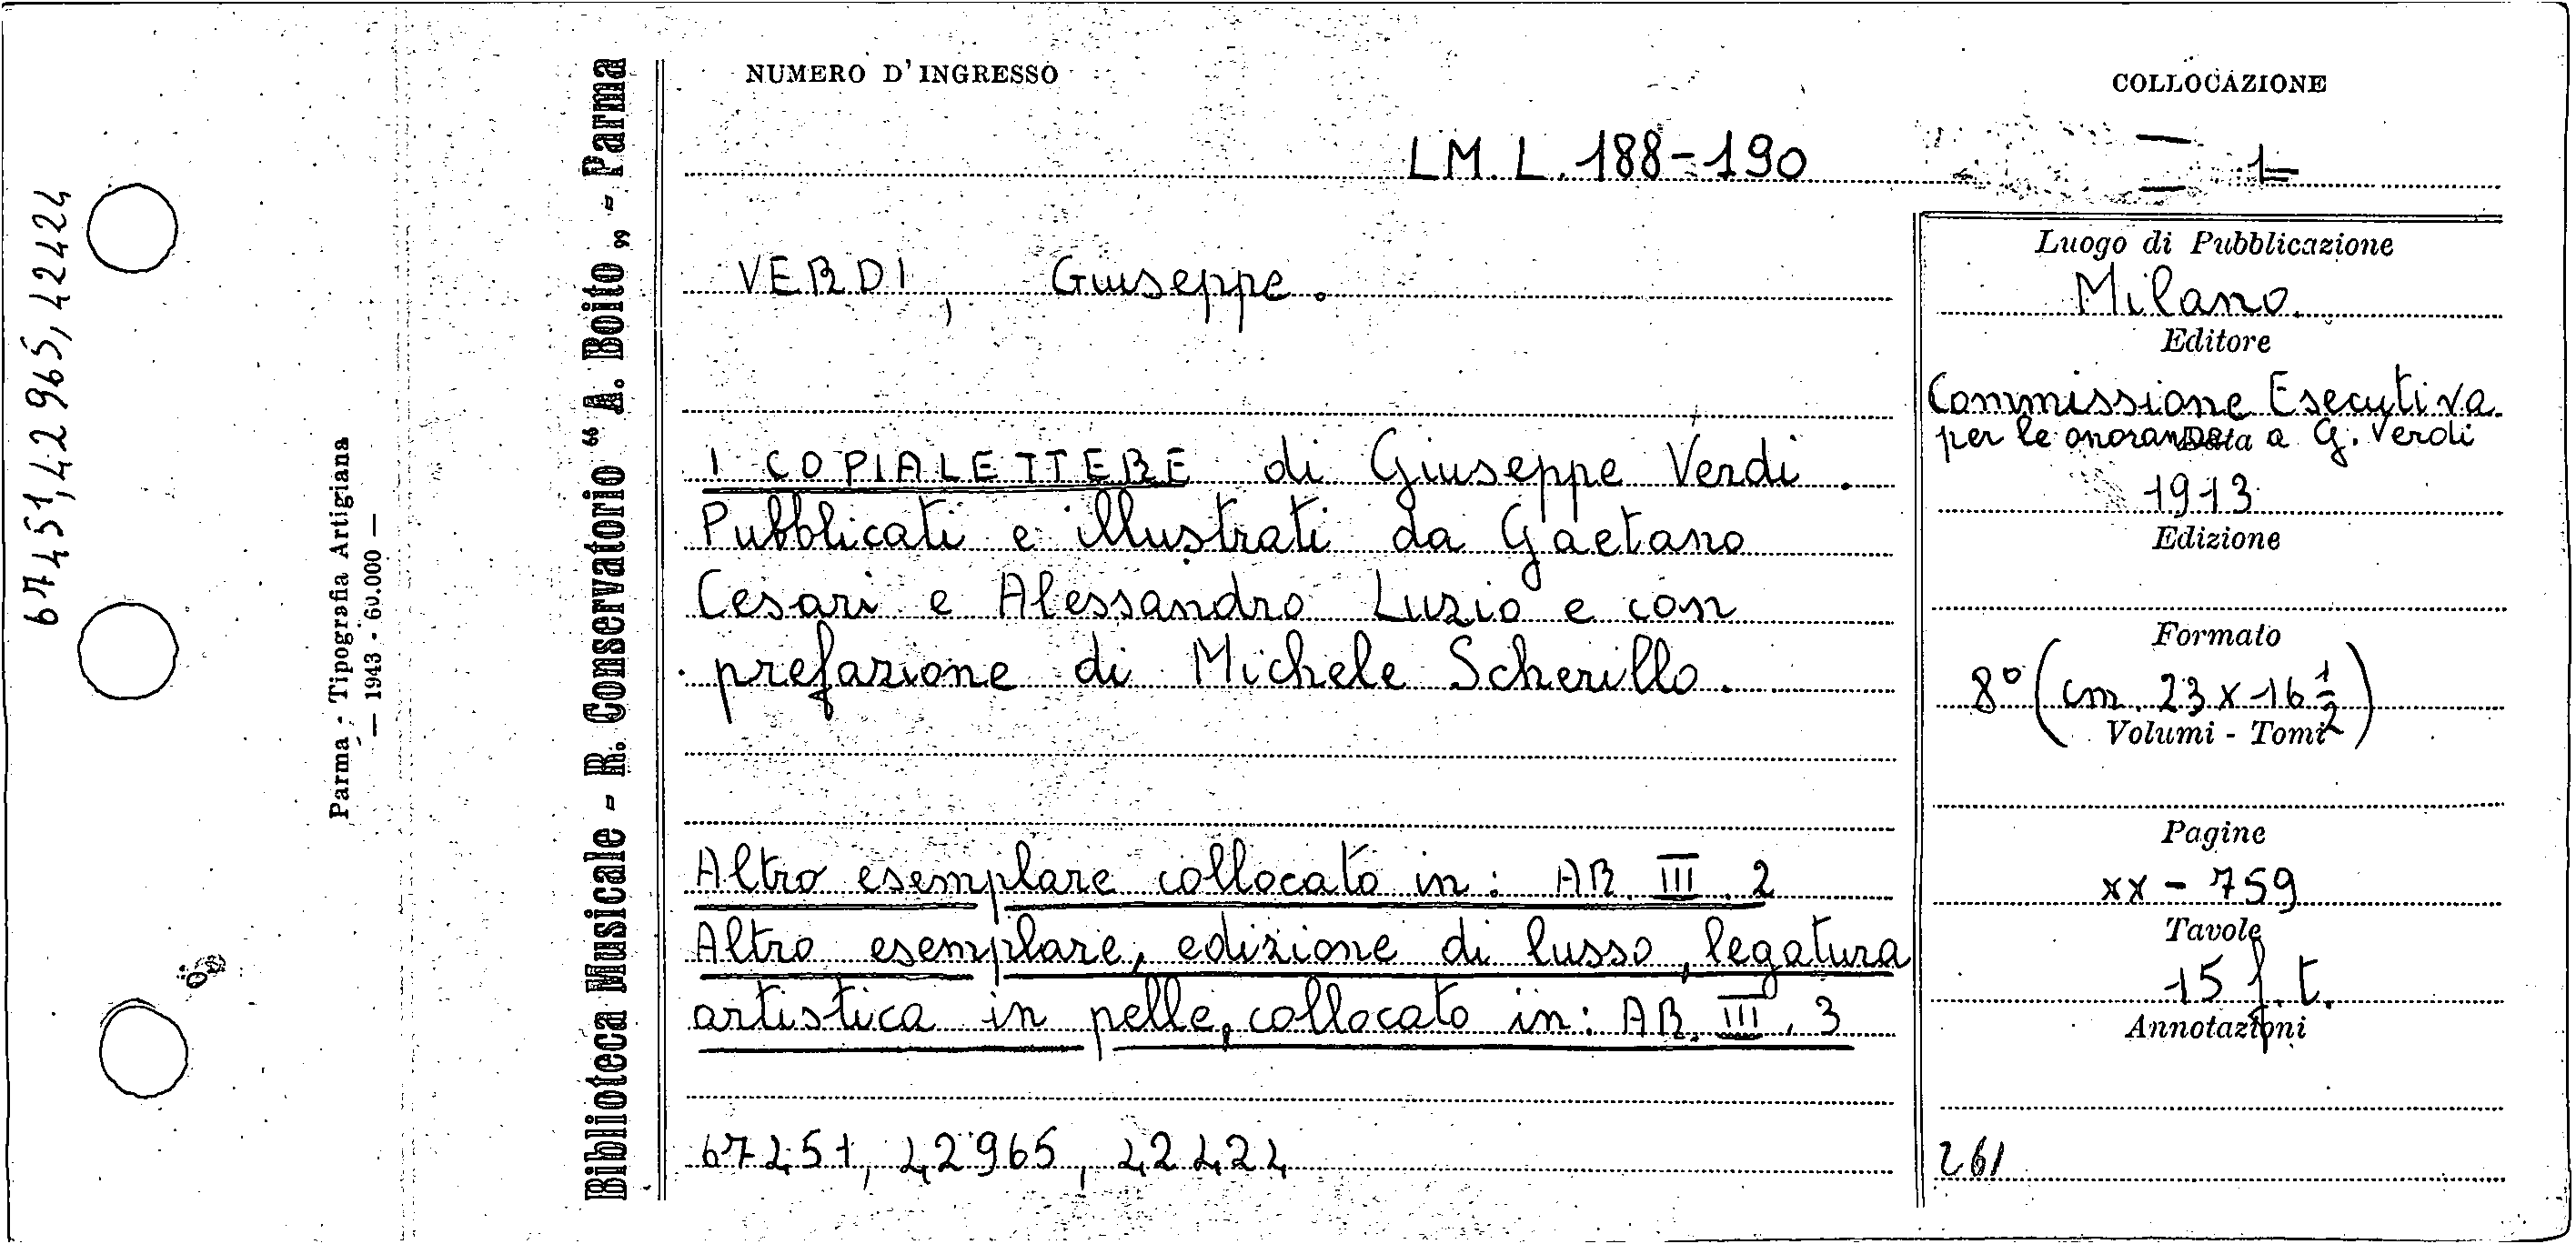 67451, 42965, 42424
Parma - Tipografia Artigiana
— 1943 - 60.000 —
Biblioteca Musicale - R. Conservatorio “ A. Boito „ - Parma
NUMERO D'INGRESSO
COLLOCAZIONE
LM. L. 188-190
VERDI, Giuseppe.
I COPIALETTERE di Giuseppe Verdi.
Pubblicati e illustrati da Gaetano
Cesari e Alessandro Luzio e con
prefazione di Michele Scherillo.
Altro esemplare collocato in: AB. III. 2
Altro esemplare, edizione di lusso, legatura
artistica in pelle, collocato in: AB. III. 3
67451, 42965, 42424
Luogo di Pubblicazione
Milano.
Editore
Commissione Esecutiva
per le onoranze a G. Verdi
Data
1913
Edizione
Formato
8° (cm. 23 x 16 1/2)
Volumi - Tomi
Pagine
xx - 759
Tavole
15 f.t.
Annotazioni
261